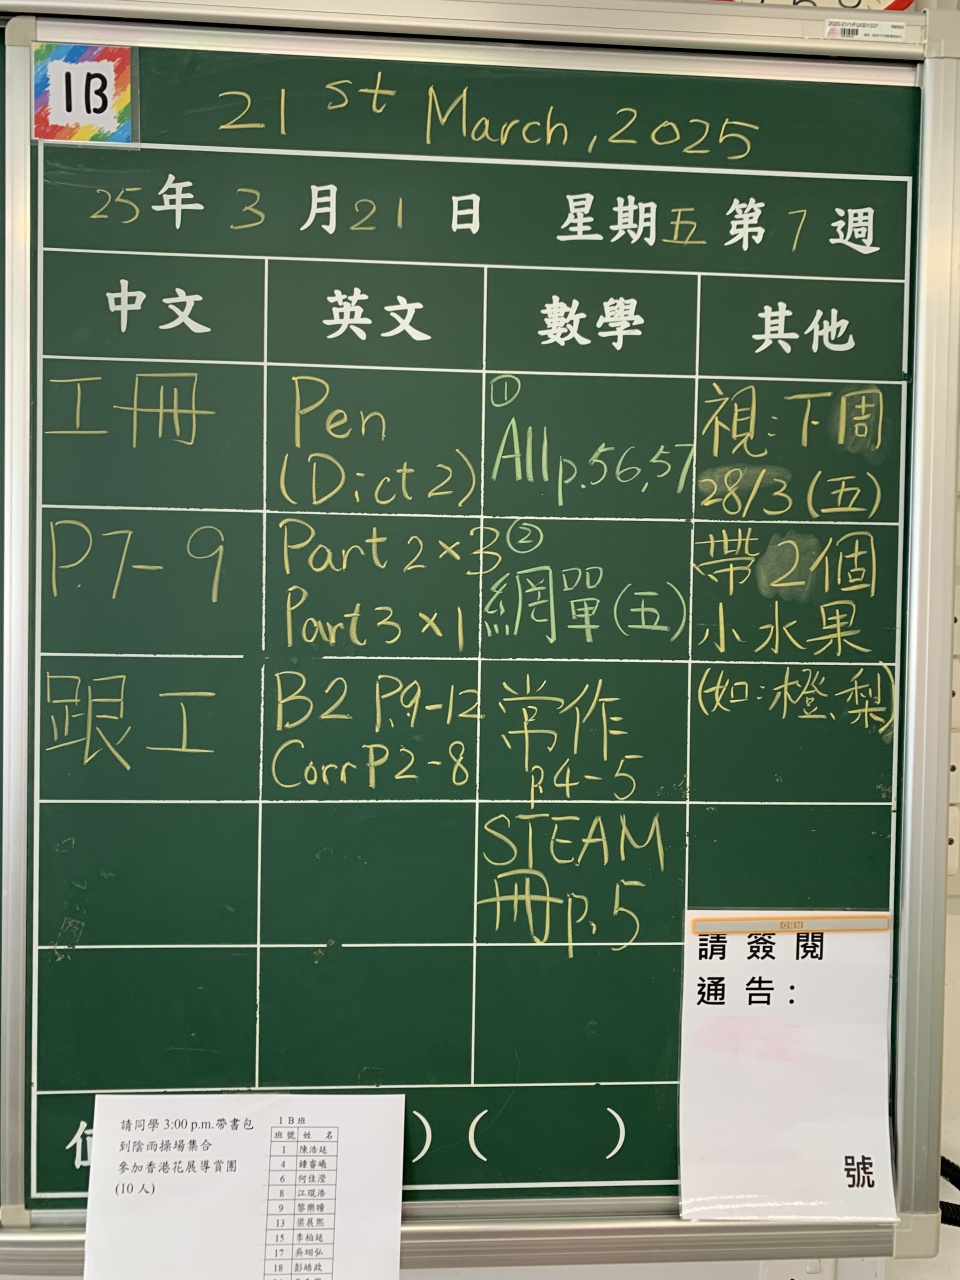 1B
21st March, 2025
25年3月21日 星期五第7週
中文 英文 數學 其他
工冊
P.7-9
跟工
Pen
(Dict 2)
Part 2×3
Part 3×1
B2 P.9-12
Corr P2-8
①
All p.56,57
②
網單(五)
常作
p.4-5
STEAM
冊p.5
視:下周
28/3(五)
帶2個
小水果
(如:橙、梨)
請簽閱
通告:
號
( )
請同學 3:00 p.m.帶書包
到陰雨操場集合
參加香港花展導賞團
(10 人)
1 B 班
班號 姓 名
1 陳浩廷
4 鍾睿曦
6 何佳瀅
8 江琨浩
9 黎樂曈
13 梁展熙
15 李柏廷
17 吳翊弘
18 彭皓政